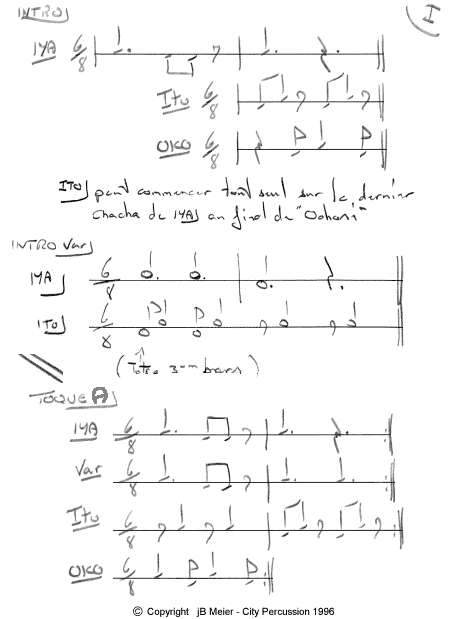 INTRO I
IYA 6/8
Ito 6/8
OKO 6/8
ITO peut commencer tout seul sur le dernier
chacha de IYA au final de "Oohoni"
INTRO Var
IYA 6/8
ITO 6/8
3 bars )
TOQUE A
IYA 6/8
Var 6/8
Ito 6/8
OKO 6/8
© Copyright jB Meier - City Percussion 1996